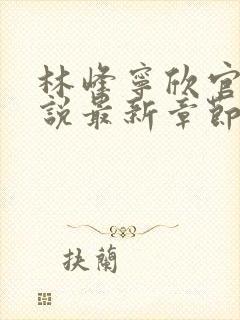 林峰寧欣官
說最新章節
抉蘭